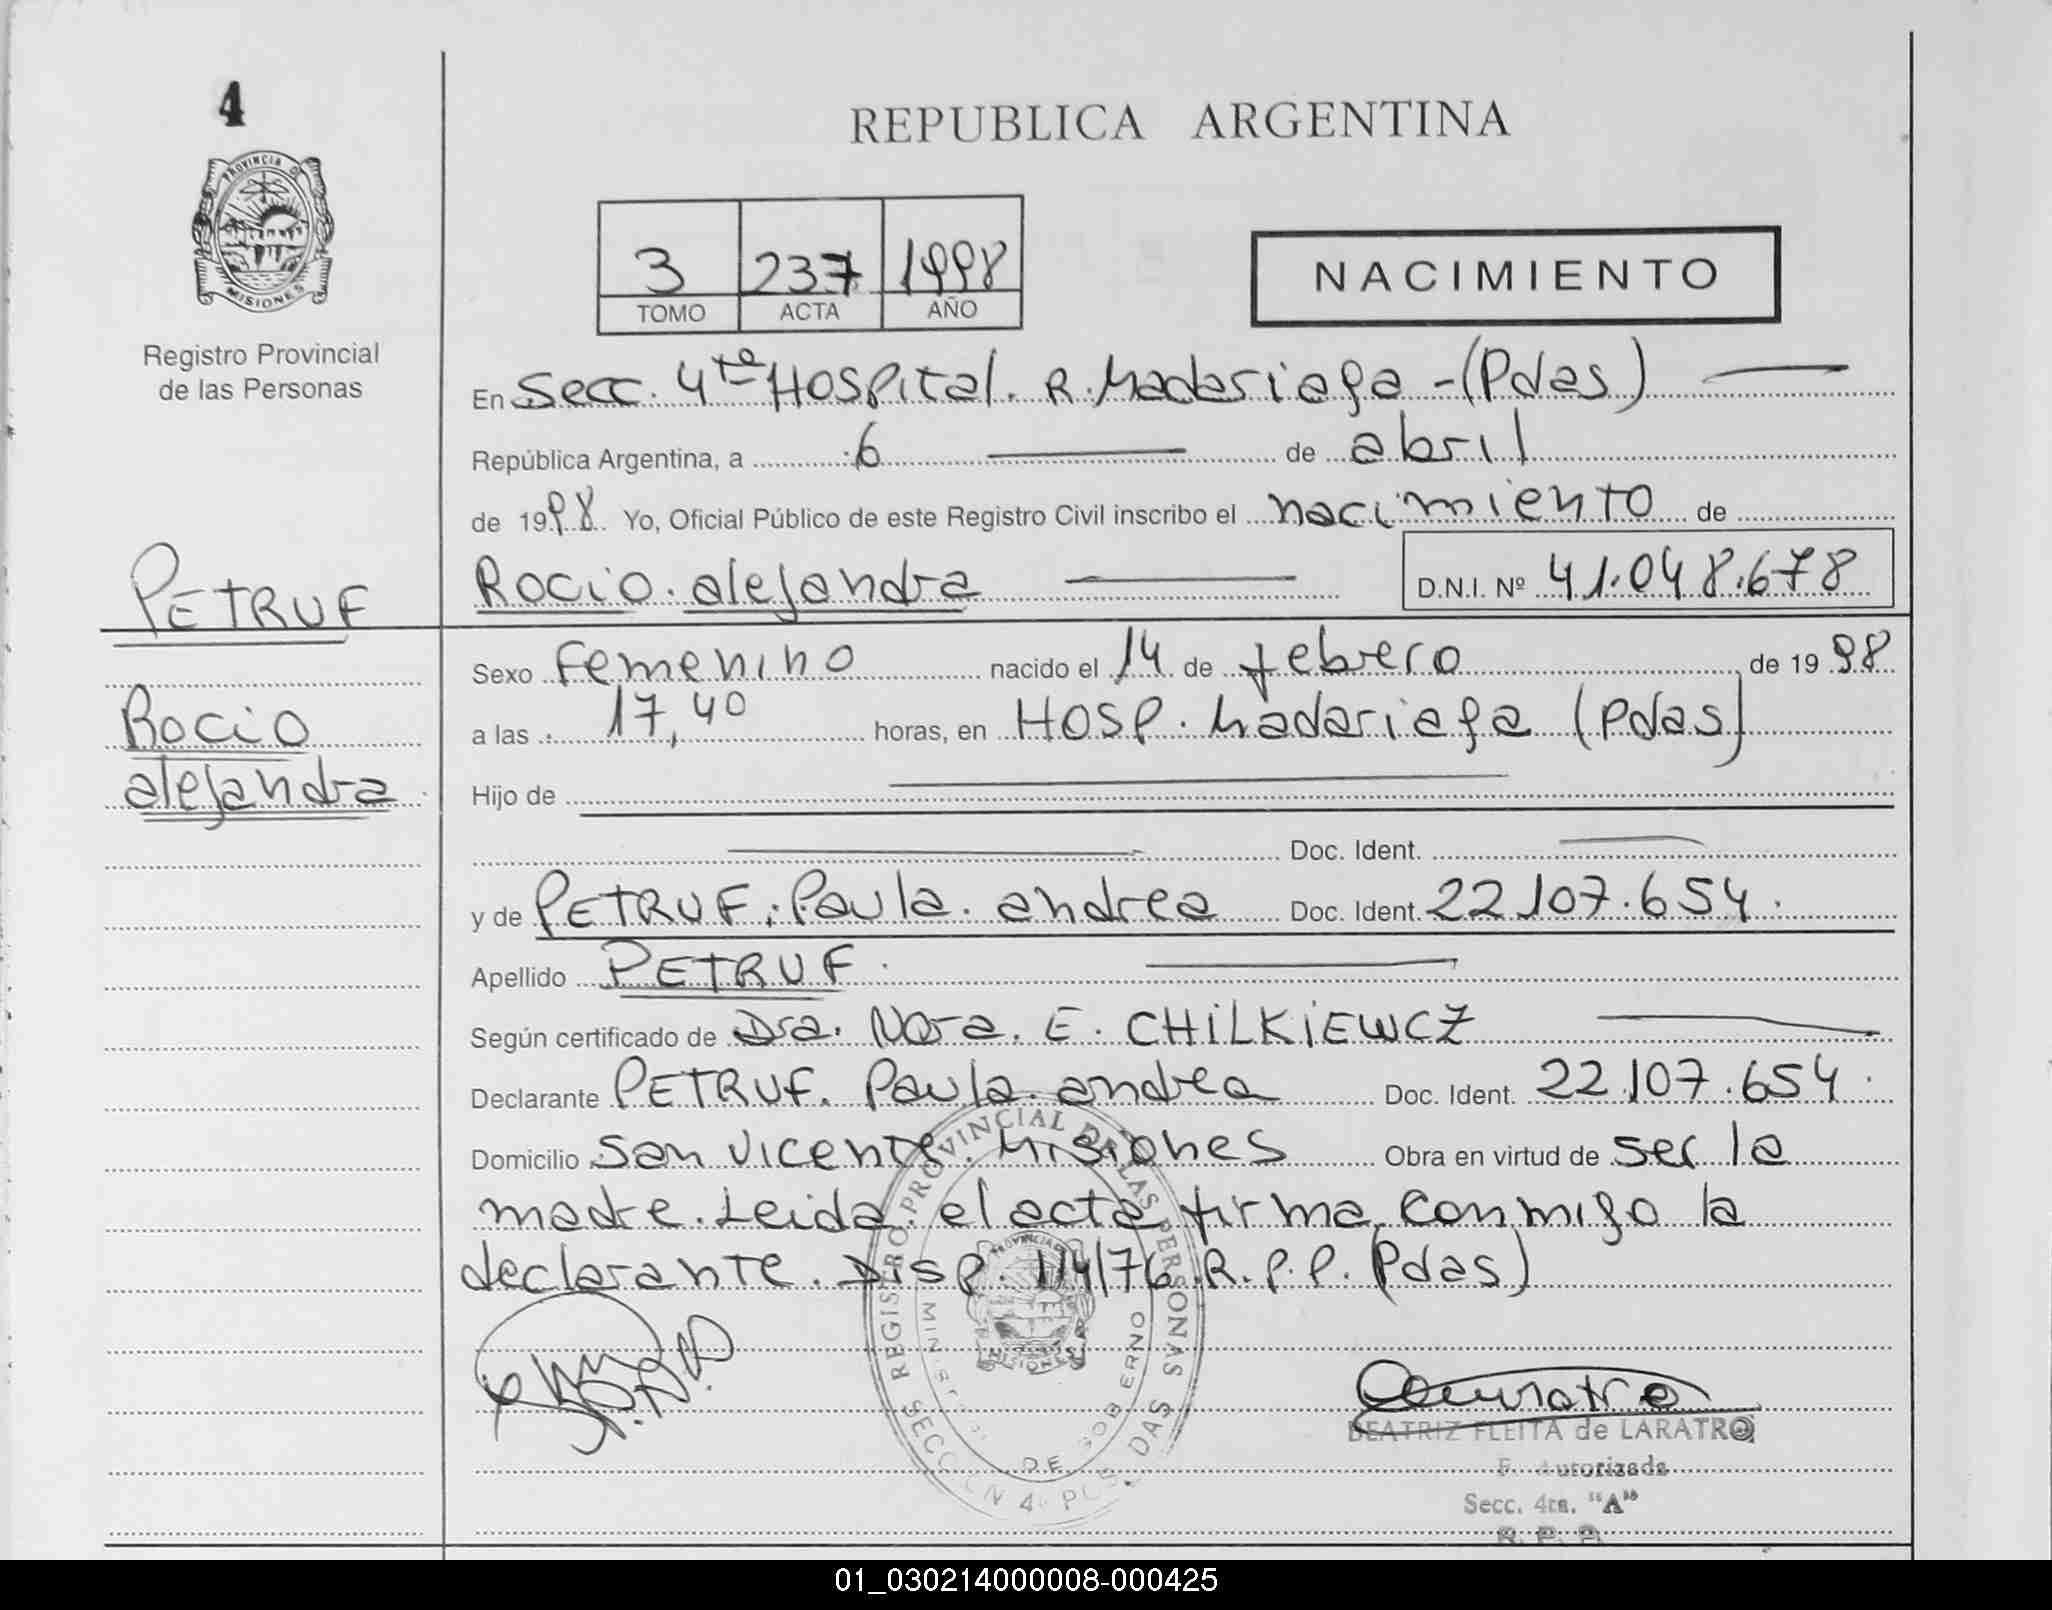 4
PROVINCIA DE
MISIONES
Registro Provincial
de las Personas
PETRUF
Rocio
alejandra
REPUBLICA ARGENTINA
3 237 1998
TOMO ACTA AÑO
NACIMIENTO
En Secc. 4ta Hospital. R. Madariaga - (Pdas)
República Argentina, a 6 de abril
de 1998 Yo, Oficial Público de este Registro Civil inscribo el nacimiento de
Rocio. alejandra D.N.I. Nº 41.048.678
Sexo Femenino nacido el 14 de febrero de 1998
a las 17,40 horas, en Hosp. Madariaga (Pdas)
Hijo de
Doc. Ident.
y de PETRUF, Paula. andrea Doc. Ident. 22.107.654.
Apellido PETRUF.
Según certificado de Dra. Nora. E. CHiLKiEWCZ
Declarante PETRUF. Paula. andrea Doc. Ident. 22.107.654.
Domicilio San Vicente. Misiones Obra en virtud de ser la
madre. Leida. el acta firma conmigo la
declarante. Disp. 114/76. R.P.P. (Pdas)
REGISTRO PROVINCIAL DE LAS PERSONAS
MINISTERIO DE GOBIERNO
SECCION 4a POSADAS
PROVINCIA DE
MISIONES
BEATRIZ FLEITA de LARATRO
F. Autorizada
Secc. 4ta. "A"
R. P. P.
01_030214000008-000425